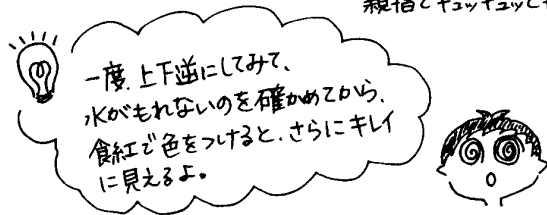 親指でキュッキュッと
一度、上下逆にしてみて、
水がもれないのを確かめてから、
食紅で色をつけると、さらにキレイ
に見えるよ。